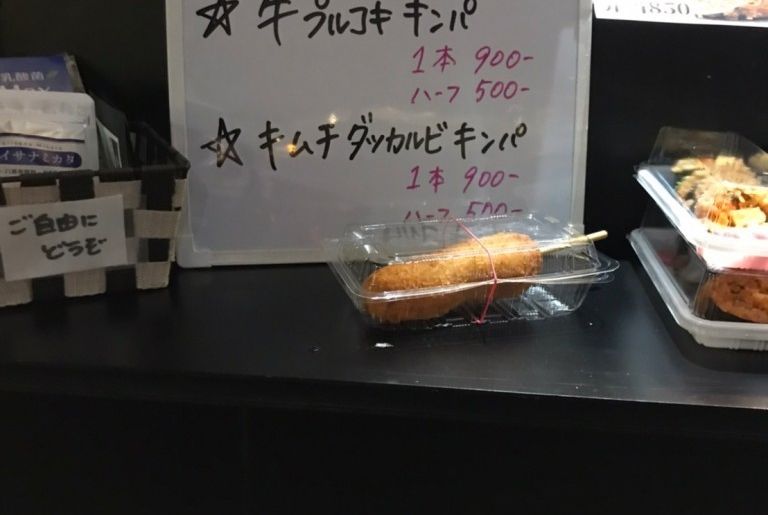 ☆ 牛プルコギキンパ
1本 900-
ハーフ 500-
☆ キムチダッカルビキンパ
1本 900-
ハーフ 500-
乳酸菌
イサナミカタ
ご自由に
どうぞ